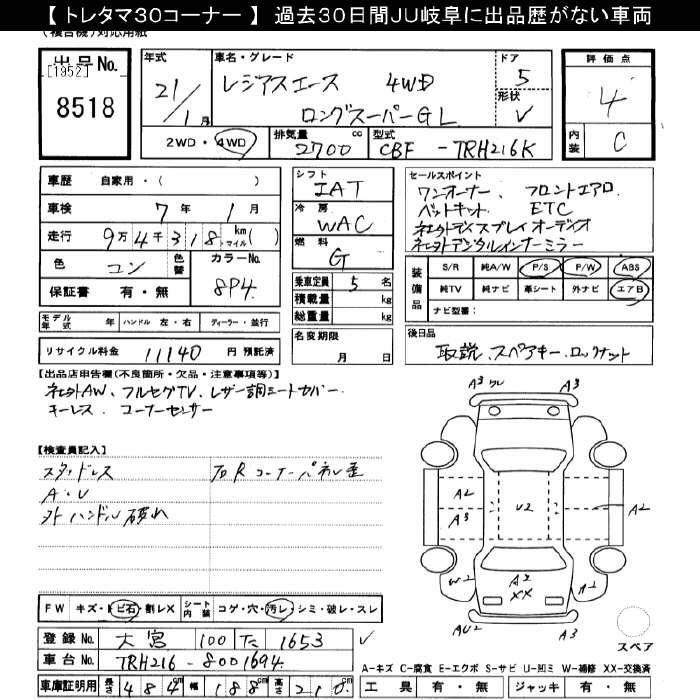 【トレタマ30コーナー】 過去30日間JU岐阜に出品歴がない車両
(複合機) 対応用紙
出品No.
[1952]
8518
年式
21/1月
車名・グレード
レジアスエース 4WD
ロングスーパーGL
ドア
5
形状
V
評価点
4
内装
C
2WD・4WD
排気量
2700cc
型式
CBF - TRH216K
車歴 自家用・( )
車検 7年 1月
走行 9万4千318km(マイル)( )
色 コン 色替
カラーNo. 8P4
保証書 有・無
シフト
IAT
冷房
WAC
燃料
G
乗車定員 5名
積載量 kg
総重量 kg
セールスポイント
ワンオーナー、フロントエアロ
ベットキット、ETC
社外ディスプレイオーディオ
社外デジタルインナーミラー
装備品
S/R 純A/W P/S P/W ABS
純TV 純ナビ 革シート 外ナビ エアB
ナビ型番:
モデル年式 年 ハンドル 左・右 ディーラー・並行
リサイクル料金 11140円 預託済
名変期限
月 日
後日品
取説、スペアキー、ロックナット
【出品店申告欄(不良箇所・欠品・注意事項等)】
社外AW、フルセグTV、レザー調シートカバー
キーレス、コーナーセンサー
【検査員記入】
スタッドレス
A・U
外ハンドル破れ
右Rコーナーパネル歪
A3 ワレ
A3
A2
A3
U2
A2
W2
A2
XX
A2
AU2
A3
スペア
FW キズ・ト ビ石・割レX
シート内装 コゲ・穴・汚レ・シミ・破レ・スレ
登録No. 大宮 100 た 1653
車台No. TRH216 - 8001694
車庫証明用 長さ 484cm 幅 188cm 高さ 210cm
A-キズ C-腐食 E-エクボ S-サビ U-凹ミ W-補修 XX-交換済
工具 有・無 ジャッキ 有・無